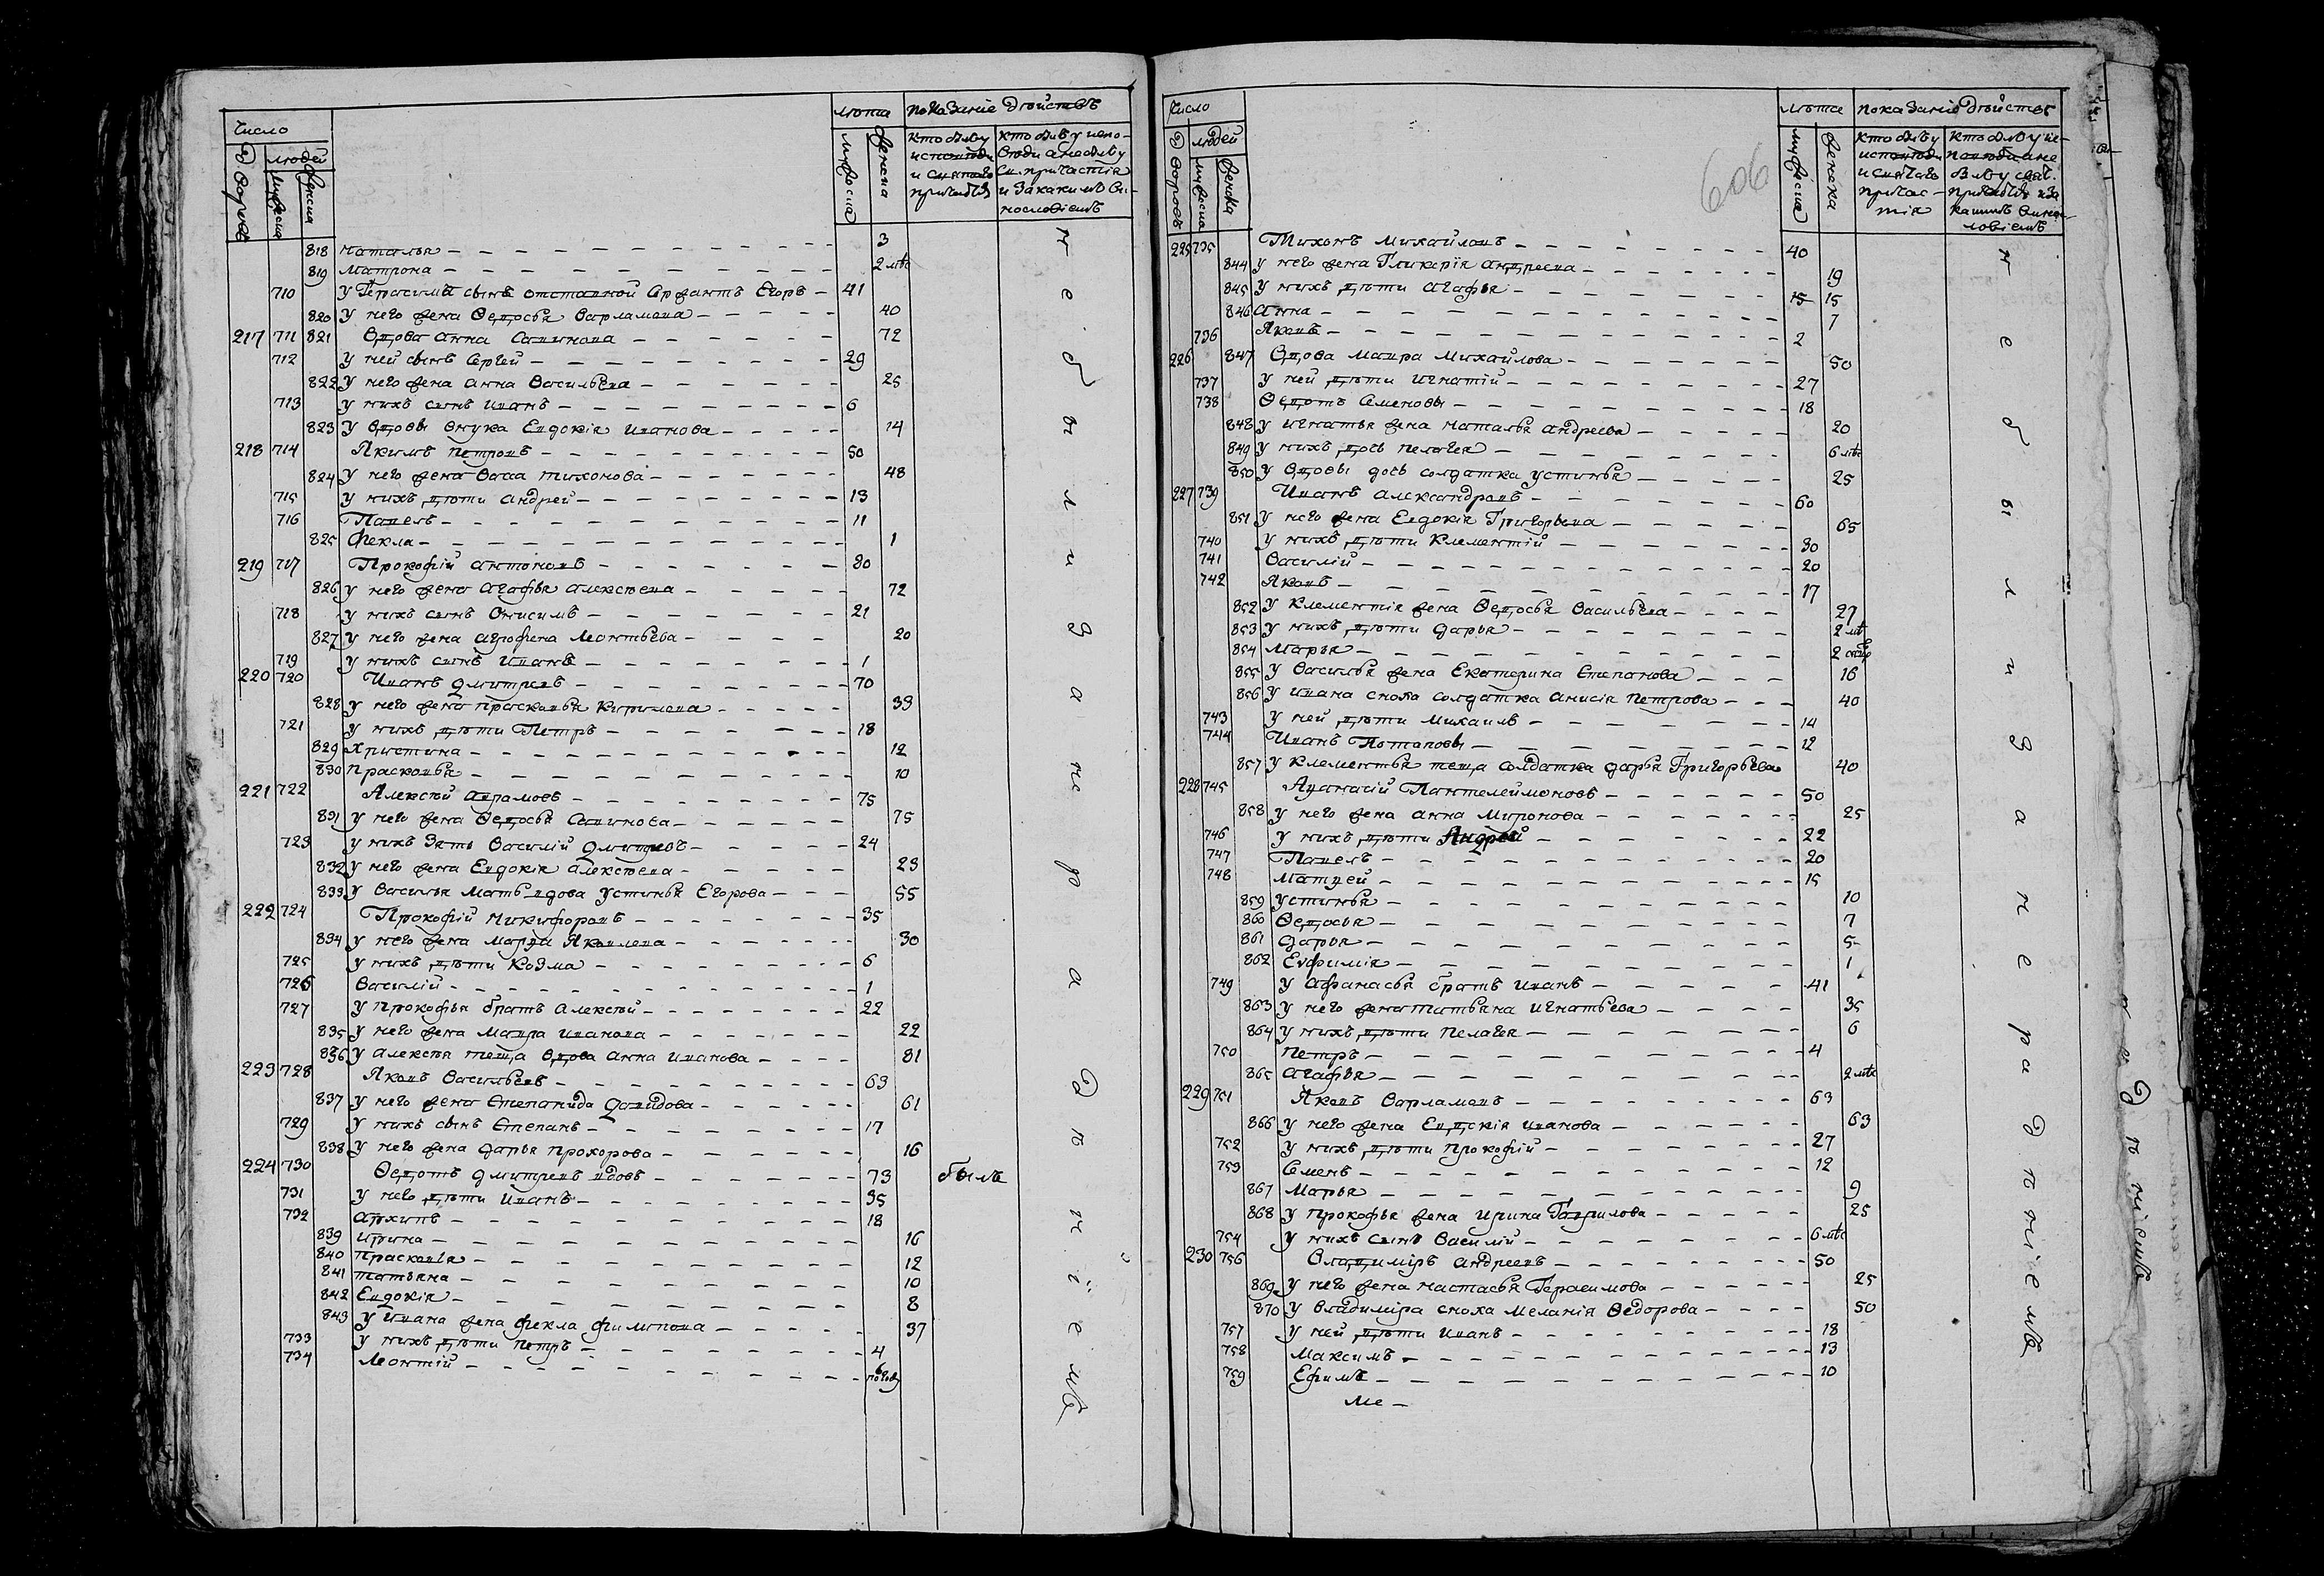 Число
лѣта показание дѣйствъ
дворовъ
людей
мужеска
женска
мужеска
женска
кто былъ у
исповѣди
и святаго
причастія
кто былъ у испо-
вѣди а не былъ у
св. причастія
и за какимъ ви-
нословіемъ
818 Наталья 3
819 Матрона 2 мѣс
710 У Герасима сынъ отставной сержантъ Егоръ 41
820 У него жена Ѳедосья Варламова 40
217 711 821 Вдова Анна Савинова 72
712 У ней сынъ Сергей 29
822 У него жена Анна Васильева 25
713 У нихъ сынъ Иванъ 6
823 У вдовы внука Евдокія Иванова 14
218 714 Якимъ Петровъ 50
824 У него жена Васса Тихонова 48
715 У нихъ дѣти Андрей 13
716 Павелъ 11
825 Фекла 1
219 717 Прокофій Антоновъ 80
826 У него жена Агафья Алексѣева 72
718 У нихъ сынъ Онисимъ 21
827 У него жена Агрофена Леонтьева 20
719 У нихъ сынъ Иванъ 1
220 720 Иванъ Дмитревъ 70
828 У него жена Прасковья Кирилова 33
721 У нихъ дѣти Петръ 18
829 Христина 12
830 Прасковья 10
221 722 Алексѣй Аврамовъ 75
831 У него жена Ѳедосья Савинова 75
723 У нихъ зять Василій Дмитревъ 24
832 У него жена Евдокія Алексѣева 23
833 У Василья мать вдова Устинья Егорова 55
222 724 Прокофій Никифоровъ 35
834 У него жена Марѳа Яковлева 30
725 У нихъ дѣти Козма 6
726 Василій 1
727 У Прокофья братъ Алексѣй 22
835 У него жена Мавра Иванова 22
836 У Алексѣя теща вдова Анна Иванова 81
223 728 Яковъ Васильевъ 63
837 У него жена Степанида Давидова 61
729 У нихъ сынъ Степанъ 17
838 У него жена Дарья Прохорова 16
224 730 Ѳедотъ Дмитревъ вдовъ 73 былъ
731 У него дѣти Иванъ 35
732 Архипъ 18
839 Ирина 16
840 Прасковья 12
841 Татьяна 10
842 Евдокія 8
843 У Ивана жена Фекла Филипова 37
733 У нихъ дѣти Петръ 4
734 Леонтій
не были за нерадѣніемъ
606
Число
лѣта показание дѣйствъ
дворовъ
людей
мужеска
женска
мужеска
женска
кто былъ у
исповѣди
и святаго
причас-
тія
225 735 Тихонъ Михайловъ 40
844 У него жена Гликерія Андреева 19
845 У нихъ дѣти Агафья 15 15
846 Анна 7
736 Яковъ 2
226 847 Вдова Мавра Михайлова 50
737 У ней дѣти Игнатій 27
738 Ѳедотъ Семеновы 18
848 У Игнатья жена Наталья Андреева 20
849 У нихъ дочь Пелагея 6 мѣс
850 У вдовы дочь солдатка Устинья 25
227 739 Иванъ Александровъ 60
851 У него жена Евдокія Григорьева 65
740 У нихъ дѣти Клементій 30
741 Василій 20
742 Яковъ 17
852 У Клементія жена Ѳедосья Васильева 27
853 У нихъ дѣти Дарья 2 мѣс
854 Марья
855 У Василья жена Екатерина Степанова 16
856 У Ивана сноха солдатка Анисія Петрова 40
743 У ней дѣти Михаилъ 14
744 Иванъ Потаповы 12
857 У Клементья теща солдатка Дарья Григорьева 40
228 745 Аѳанасій Пантелеймоновъ 50
858 У него жена Анна Миронова 25
746 У нихъ дѣти Андрей 22
747 Павелъ 20
748 Матѳей 15
859 Устинья 10
860 Ѳедосья 7
861 Дарья 5
862 Евфимія 1
749 У Афанасья братъ Иванъ 41
863 У него жена Татьяна Игнатьева 35
864 У нихъ дѣти Пелагея 6
750 Петръ 4
865 Агафья 2 мѣс
229 751 Яковъ Варламовъ 63
866 У него жена Евдокія Иванова 63
752 У нихъ дѣти Прокофій 27
753 Семенъ 12
867 Марья 9
868 У Прокофья жена Ирина Гаврилова 25
754 У нихъ сынъ Василій 6 мѣс
230 756 Владимиръ Андреевъ 50
869 У него жена Настасья Герасимова 25
870 У Владиміра сноха Меланія Ѳедорова 50
757 У ней дѣти Иванъ 18
758 Максимъ 13
759 Ефимъ 10
Ме-
не были за нерадѣніемъ